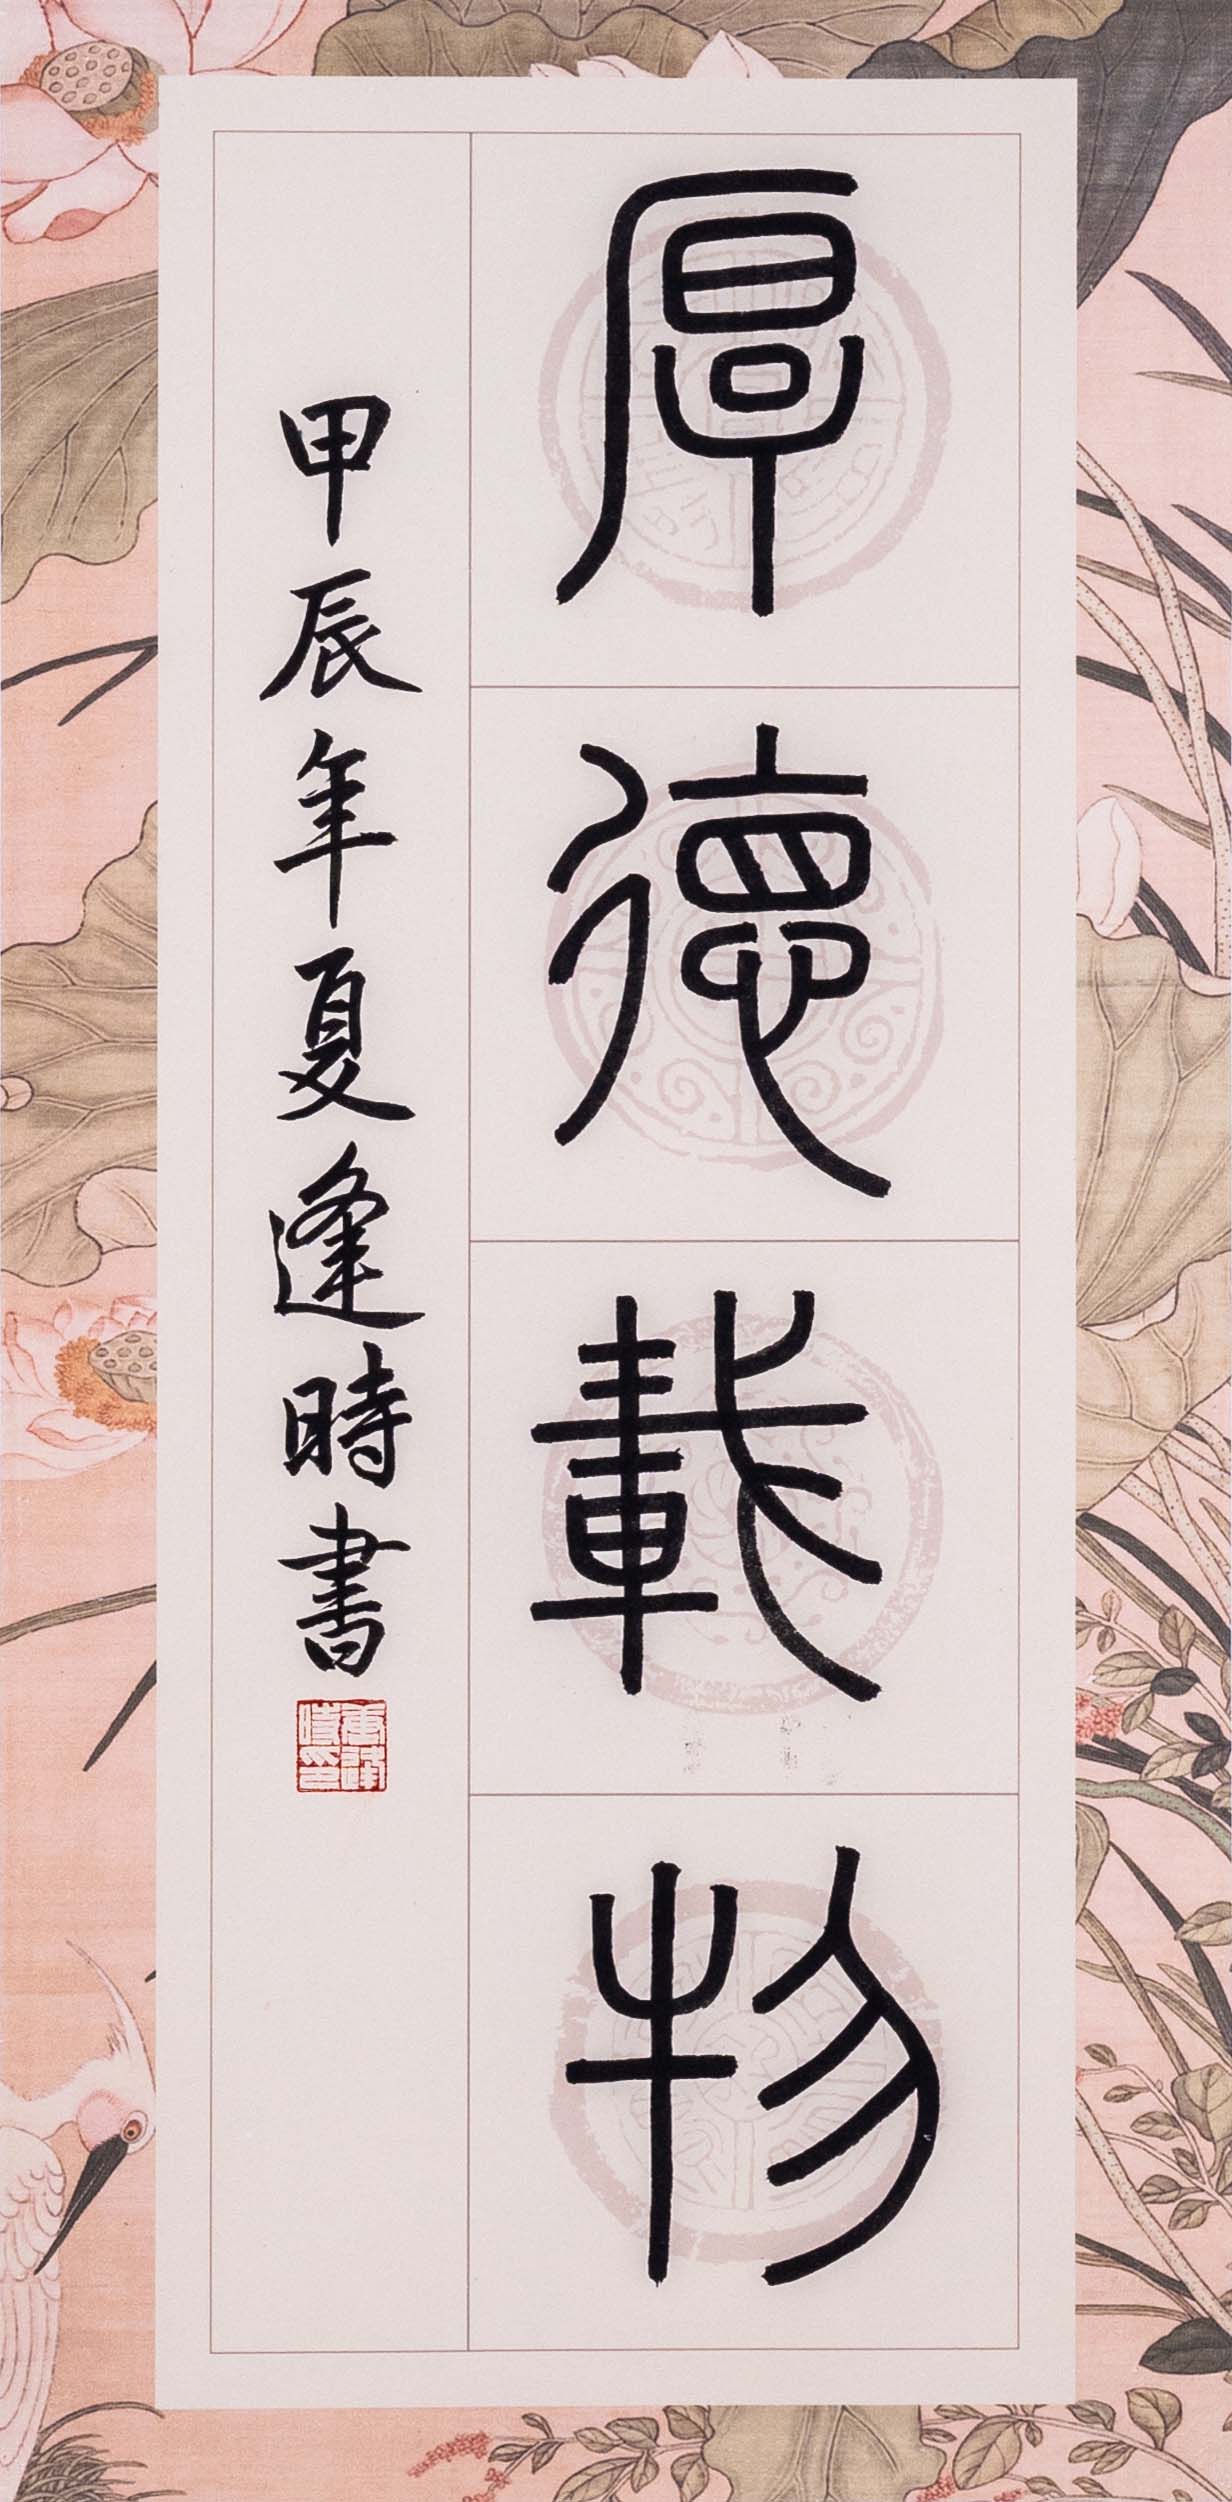 厚德載物
甲辰年夏逢時書